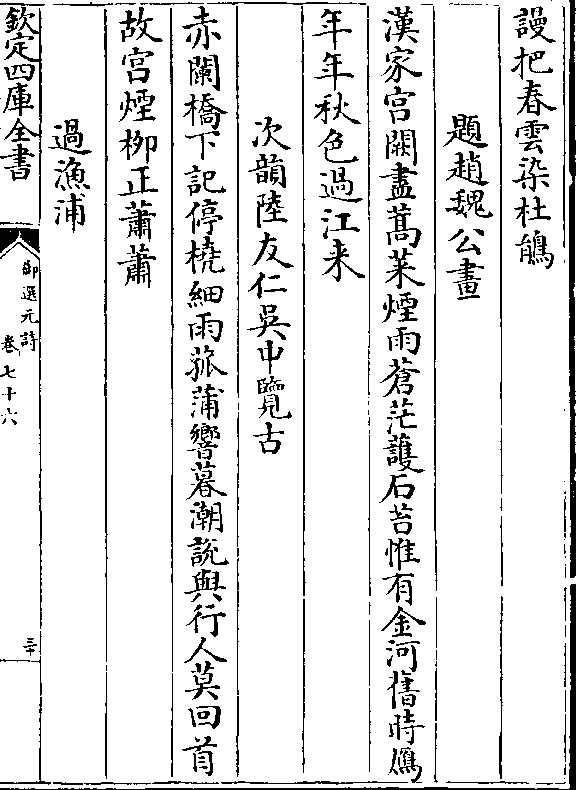 謾把春雲染杜鵑
題趙魏公畫
漢家宮闕盡蒿萊煙雨蒼茫護石苔惟有金河舊時鴈
年年秋色過江来
次韻陸友仁吳中覽古
赤闌橋下記停橈細雨菰蒲響暮潮說與行人莫回首
故宮煙柳正蕭蕭
過漁浦
欽定四庫全書
御選元詩
卷七十六
三十